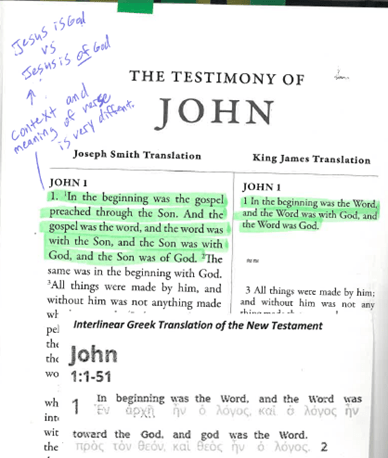 Jesus is God
vs
Jesus is of God
↑
context and
meaning of verse
is very diffent.
THE TESTIMONY OF
JOHN
Joseph Smith Translation
JOHN 1
1. ¹In the beginning was the gospel
preached through the Son. And the
gospel was the word, and the word was
with the Son, and the Son was with
God, and the Son was of God. ²The
same was in the beginning with God.
³All things were made by him, and
without him was not anything made
wh
pel
the
wo
wh
int
wit
the
King James Translation
JOHN 1
1 In the beginning was the Word,
and the Word was with God, and
the Word was God.
≈≈
3 All things were made by him;
and without him was not any
Interlinear Greek Translation of the New Testament
John
1:1-51
1 In beginning was the Word, and the Word was
Ἐν ἀρχῇ ἦν ὁ λόγος, καὶ ὁ λόγος ἦν
toward the God, and god was the Word.
πρὸς τὸν θεόν, καὶ θεὸς ἦν ὁ λόγος. 2